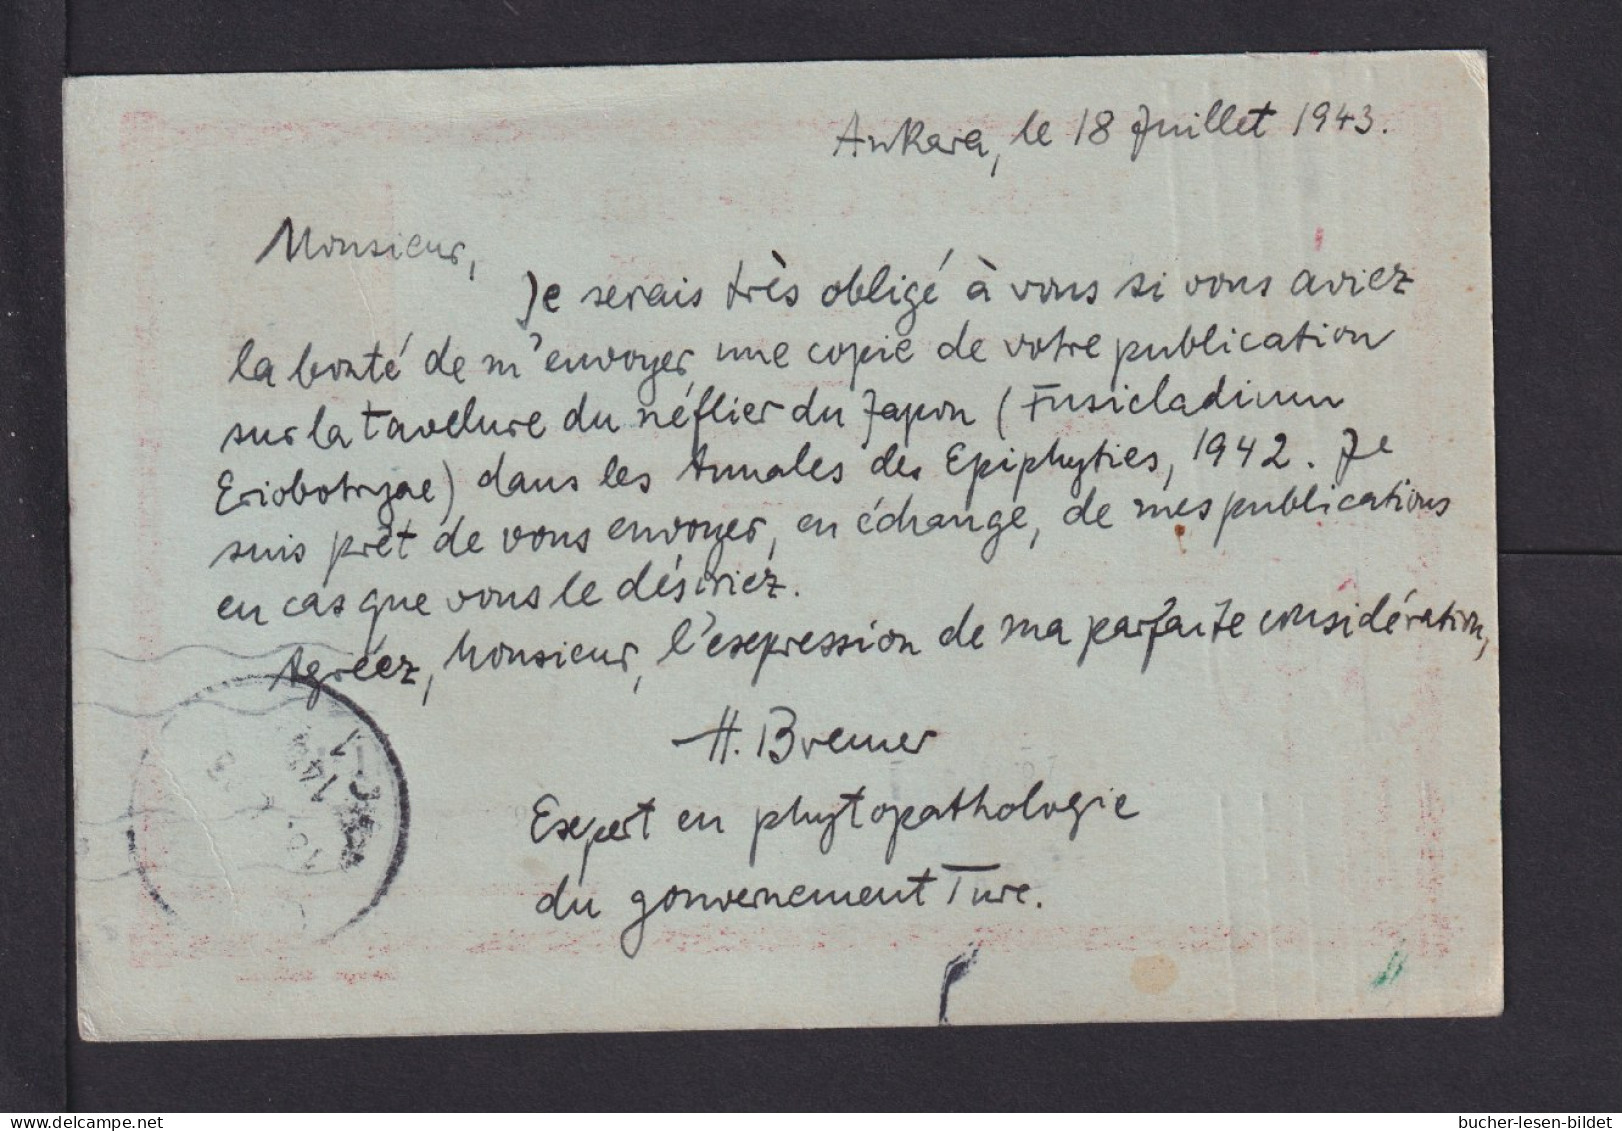 Ankara, le 18 Juillet 1943.
Monsieur,
Je serais très obligé à vous si vous aviez
la bonté de m'envoyer une copie de votre publication
sur la tavelure du néflier du Japon (Fusicladium
Eriobotryae) dans les Annales des Epiphyties, 1942. Je
suis prêt de vous envoyer, en échange, de mes publications
en cas que vous le désiriez.
Agréez, Monsieur, l'expression de ma parfaite considération,
H. Bremer
Expert en phytopathologie
du gouvernement Turc.
bucher-lesen-bildet